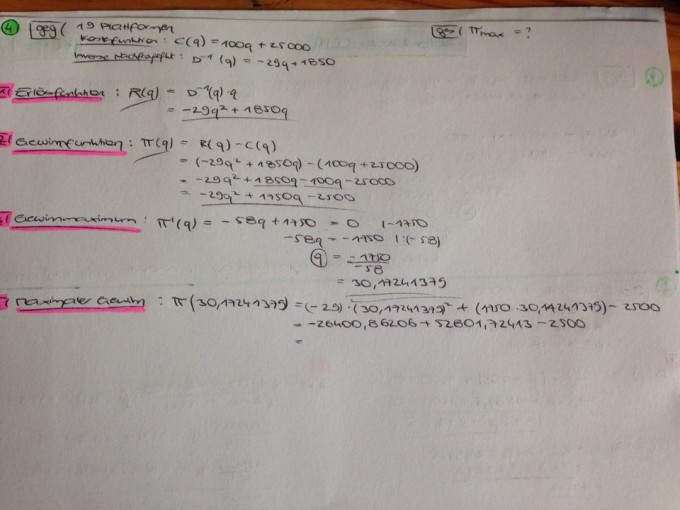 4) geg( 19 Plattformen ges( πmax = ?
Kostenfunktion : C(q) = 100q + 25000
inverse Nachfragefkt : D⁻¹(q) = -29q + 1850
Erlösfunktion : R(q) = D⁻¹(q)·q
= -29q² + 1850q
2) Gewinnfunktion : π(q) = R(q) - C(q)
= (-29q² + 1850q) - (100q + 25000)
= -29q² + 1850q - 100q - 25000
= -29q² + 1750q - 2500
Gewinnmaximum : π'(q) = -58q + 1750 = 0 |-1750
-58q = -1750 |:(-58)
q = -1750/-58
= 30,17241379
maximaler Gewinn : π(30,17241379) = (-29)·(30,17241379)² + (1750·30,17241379) - 2500
= -26400,86206 + 52801,72413 - 2500
=